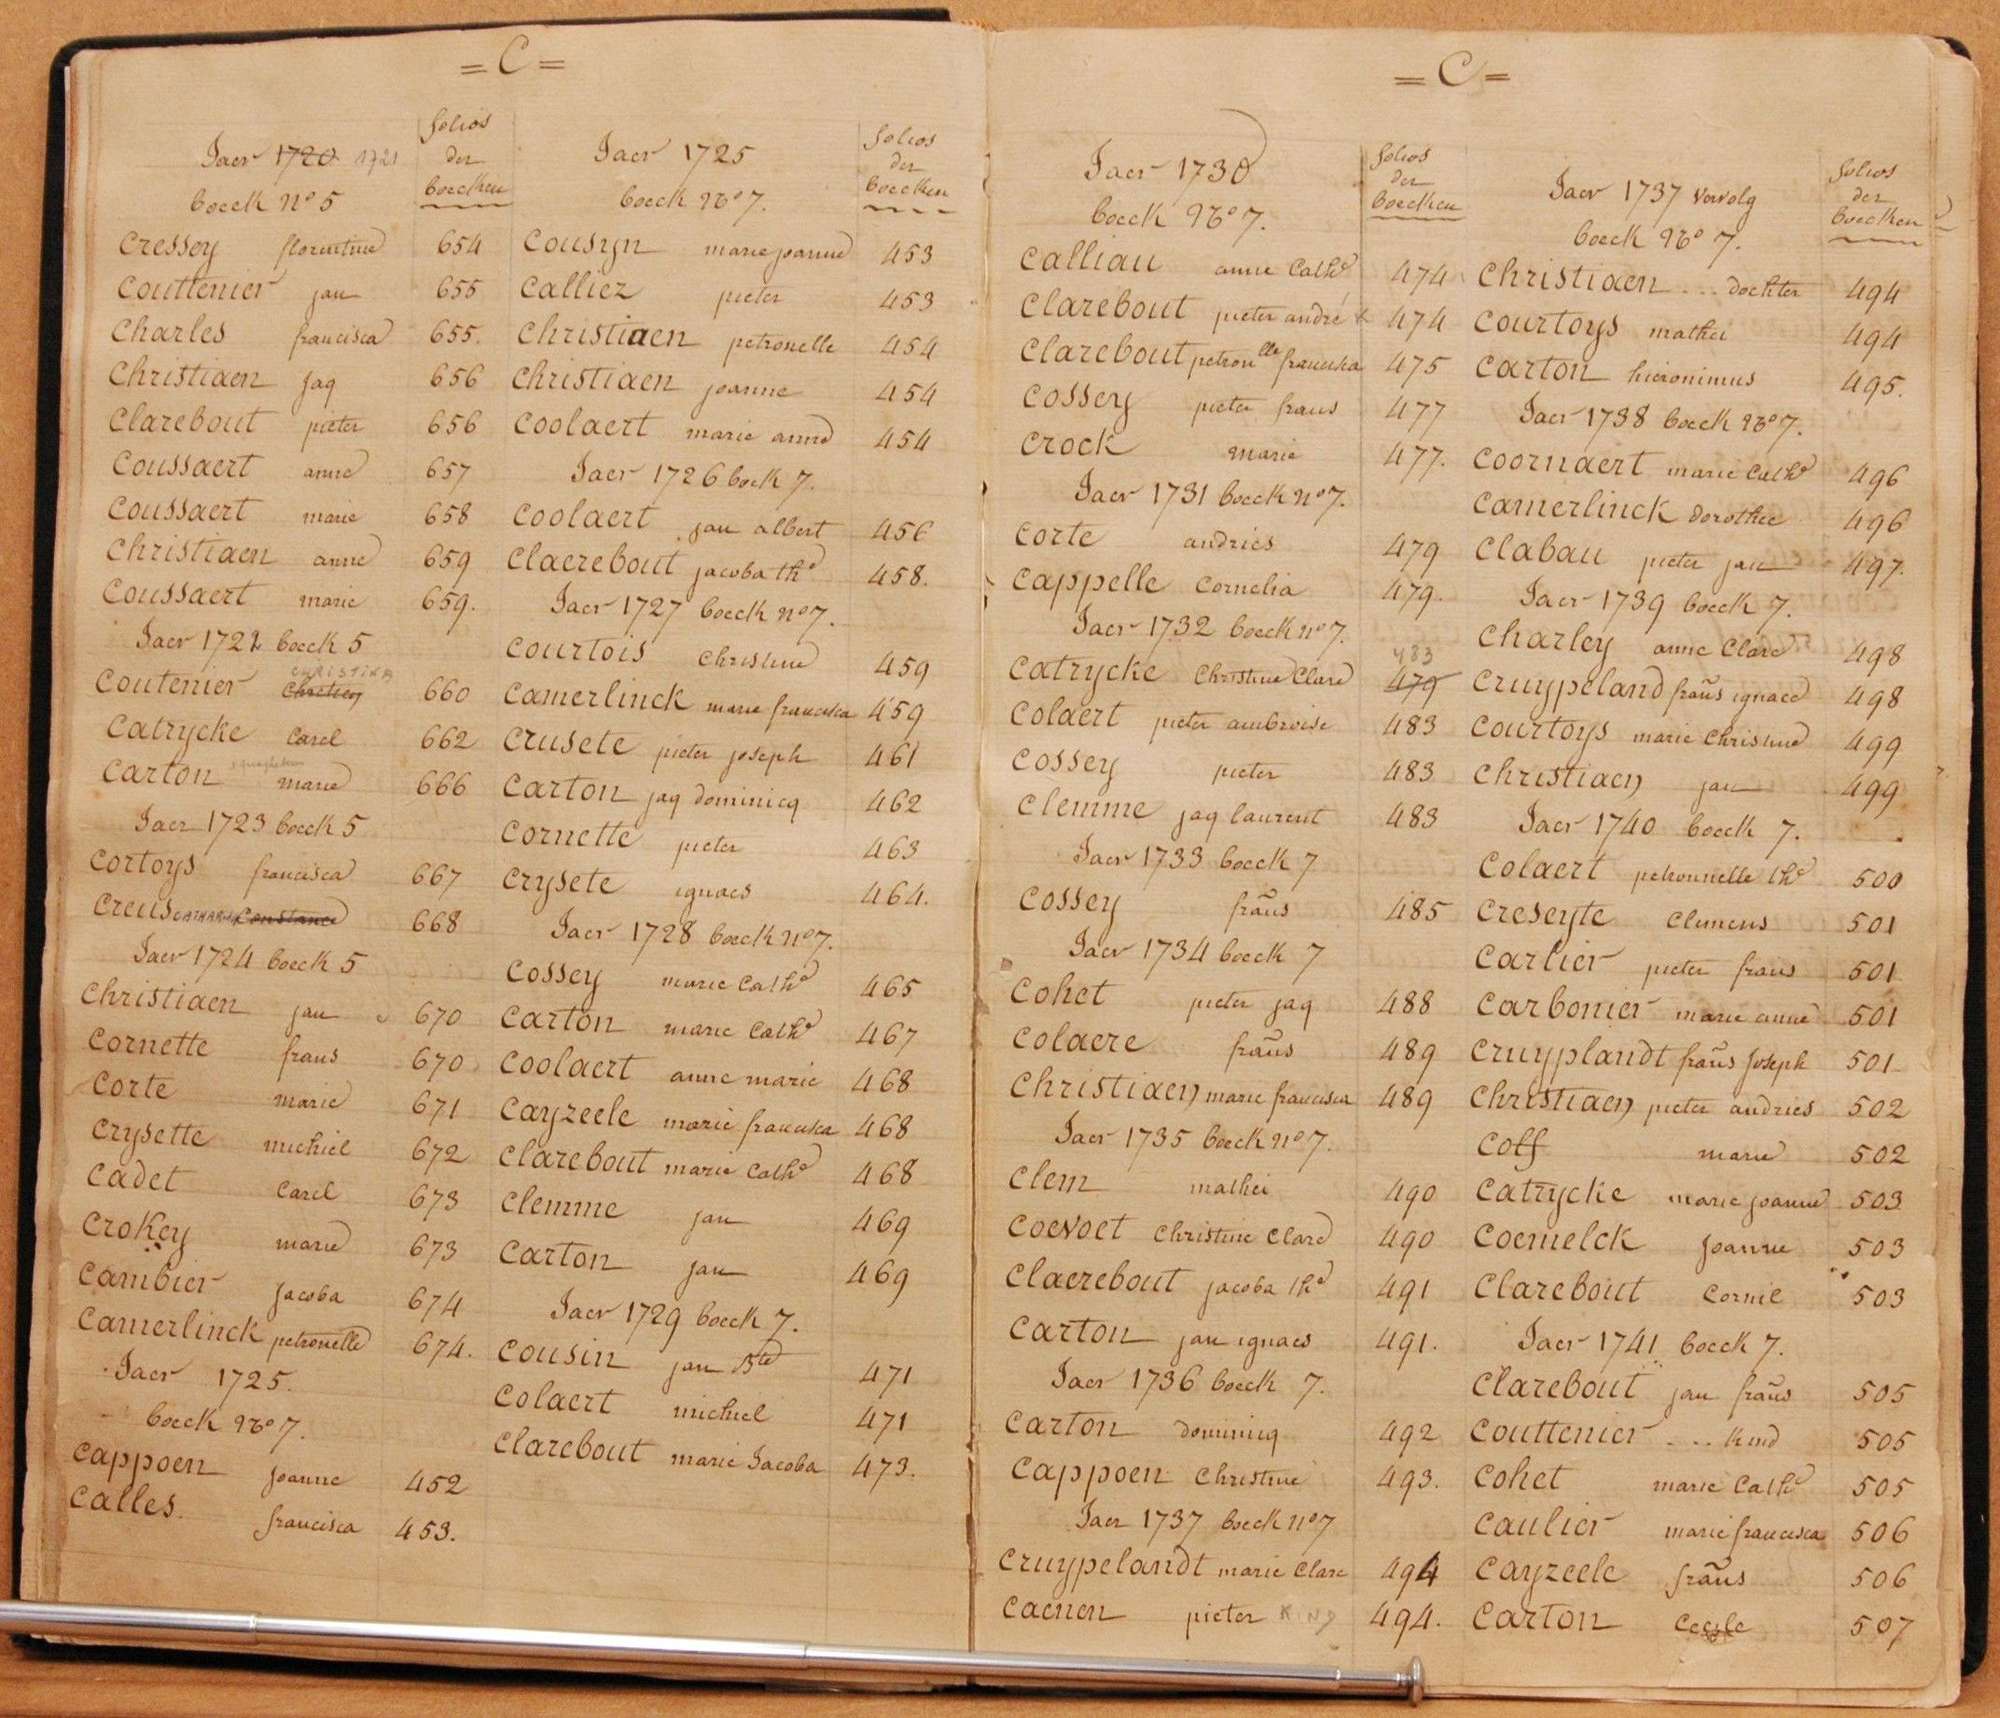 = C =
Jaer 1720 1721
boeck No 5
folios
der
boecken
Cressey florentine 654
Couttenier jan 655
Charles francisca 655.
Christiaen jaq 656
Clarebout pieter 656
Coussaert anne 657
Coussaert marie 658
Christiaen anne 659
Coussaert marie 659.
Jaer 1722 boeck 5
CHRISTINA
Coutenier Chretien 660
Catrycke Carel 662
Carton marie 666
Jaer 1723 boeck 5
Cortoys francisca 667
Creus CATHARINA Constance 668
Jaer 1724 boeck 5
Christiaen jan 670
Cornette frans 670
Corte marie 671
Crysette michiel 672
Cadet Carel 673
Crokey marie 673
Cambier Jacoba 674
Camerlinck petronelle 674.
Jaer 1725.
boeck No 7.
Cappoen Joanne 452
Calles. francisca 453.
Jaer 1725
boeck No 7.
folios
der
boecken
Cousyn marie joanne 453
Calliez pieter 453
Christiaen petronelle 454
Christiaen joanne 454
Coolaert marie anne 454
Jaer 1726 boek 7.
Coolaert jan albert 456
Claerebout jacoba the 458.
Jaer 1727 boeck no 7.
Courtois Christine 459
Camerlinck marie francisca 459
Crusete pieter joseph 461
Carton jaq dominicq 462
Cornette pieter 463
Crysete ignaes 464.
Jaer 1728 boeck no 7.
Cossey marie Cathe 465
Carton marie Cathe 467
Coolaert anne marie 468
Cayzeele marie francisca 468
Clarebout marie Cathe 468
Clemme jan 469
Carton jan 469
Jaer 1729 boeck 7.
Cousin jan Bte 471
Colaert michiel 471
Clarebout marie Jacoba 473.
= C =
Jaer 1730
boeck No 7.
folios
der
boecken
Calliau anne Cathe 474
Clarebout pieter andré 474
Clarebout petronlle francisca 475
Cossey pieter frans 477
Crock marie 477.
Jaer 1731 boeck no 7.
Corte andries 479
Cappelle Cornelia 479.
Jaer 1732 boeck no 7.
483
Catrycke Christine Clare 479
Colaert pieter ambroise 483
Cossey pieter 483
Clemme jaq laurent 483
Jaer 1733 boeck 7
Cossey frans 485
Jaer 1734 boeck 7
Cohet pieter jaq 488
Colaere frans 489
Christiaen marie francisca 489
Jaer 1735 boeck no 7.
Clem mathei 490
Coevoet Christine Clare 490
Claerebout jacoba the 491
Carton jan ignaes 491.
Jaer 1736 boeck 7.
Carton dominicq 492
Cappoen Christine 493.
Jaer 1737 boeck no 7
Cruypelandt marie Clare 494
Caenen pieter KIND 494.
Jaer 1737 vervolg
boeck No 7.
folios
der
boecken
Christiaen ... dochter 494
Courtoys mathei 494
Carton hieronimus 495.
Jaer 1738 boeck No 7.
Coornaert marie Cathe 496
Camerlinck dorothee 496
Clabau pieter jan 497.
Jaer 1739 boeck 7.
Charley anne Clare 498
Cruypeland frans ignace 498
Courtoys marie Christine 499
Christiaen jan 499
Jaer 1740 boeck 7.
Colaert petronnelle the 500
Creseyte Clemens 501
Carlier pieter frans 501
Carbonier marie anne 501
Cruyplandt frans Joseph 501
Christiaen pieter andries 502
Coff marie 502
Catrycke marie joanne 503
Coemelck Joanne 503
Clarebout Cornil 503
Jaer 1741 boeck 7.
Clarebout jan frans 505
Couttenier ... Kind 505
Cohet marie Cathe 505
Caulier marie francisca 506
Cayzeele frans 506
Carton Cecile 507